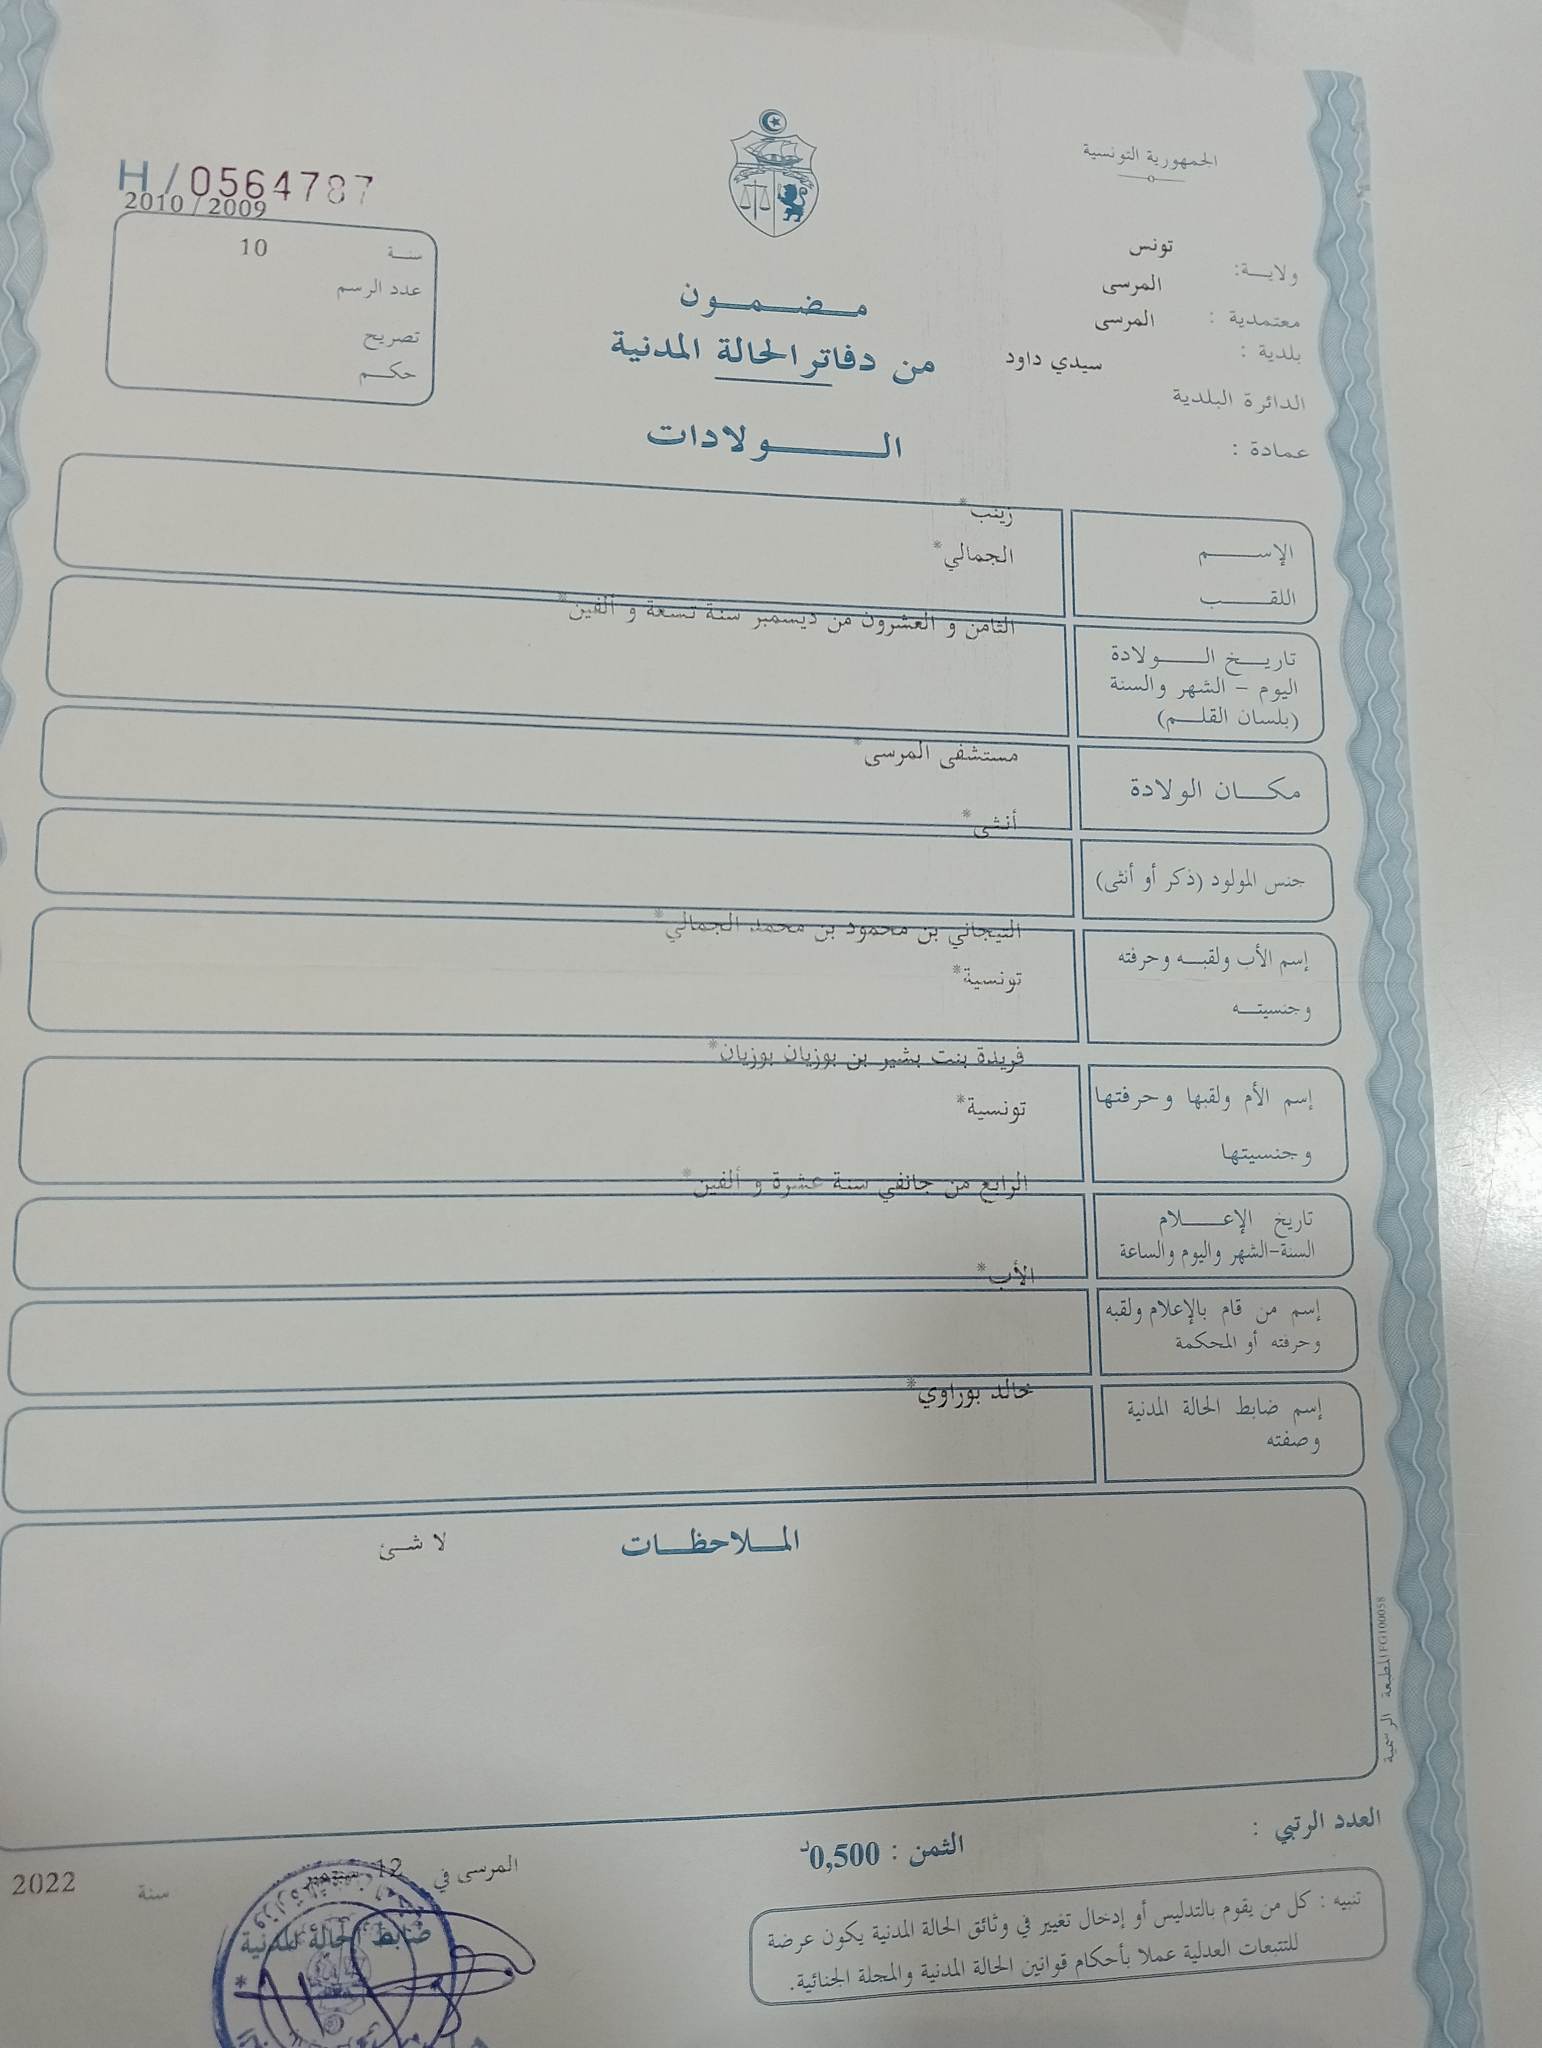 الجمهورية التونسية
H/0564787
2010 / 2009
سنة 10
عدد الرسم
تصريح
حكم
ولاية: تونس
معتمدية : المرسى
بلدية : المرسى
الدائرة البلدية سيدي داود
عمادة :
مضمون
من دفاتر الحالة المدنية
الولادات
الإسم زينب*
اللقب الجمالي*
تاريخ الولادة
اليوم – الشهر والسنة
(بلسان القلم)
الثامن و العشرون من ديسمبر سنة تسعة و ألفين*
مكان الولادة مستشفى المرسى*
جنس المولود (ذكر أو أنثى) أنثى*
إسم الأب ولقبه وحرفته التيجاني بن محمود بن محمد الجمالي*
وجنسيته تونسية*
إسم الأم ولقبها وحرفتها فريدة بنت بشير بن بوزيان بوزيان*
وجنسيتها تونسية*
تاريخ الإعلام
السنة-الشهر واليوم والساعة
الرابع من جانفي سنة عشرة و ألفين*
إسم من قام بالإعلام ولقبه
وحرفته أو المحكمة
الأب*
إسم ضابط الحالة المدنية
وصفته
خالد بوراوي*
الملاحظات
لا شئ
المطبعة الرسمية FG100058
العدد الرتبي :
الثمن : 0,500د
المرسى في 12 سبتمبر سنة 2022
ضابط الحالة المدنية
تنبيه : كل من يقوم بالتدليس أو إدخال تغيير في وثائق الحالة المدنية يكون عرضة
للتتبعات العدلية عملا بأحكام قوانين الحالة المدنية والمجلة الجنائية.